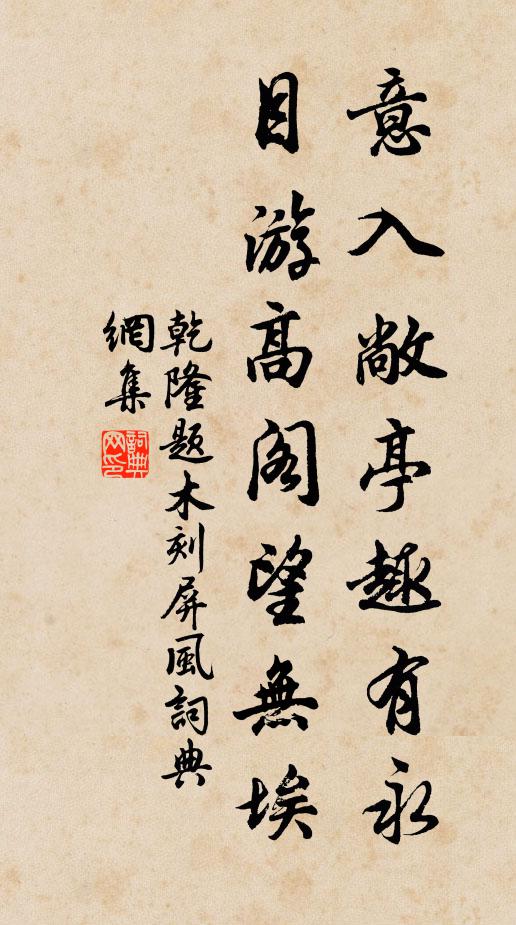 意入敞亭趣有永
目游高阁望無埃
乾隆题木刻屏風詞典
網集
詞典网印